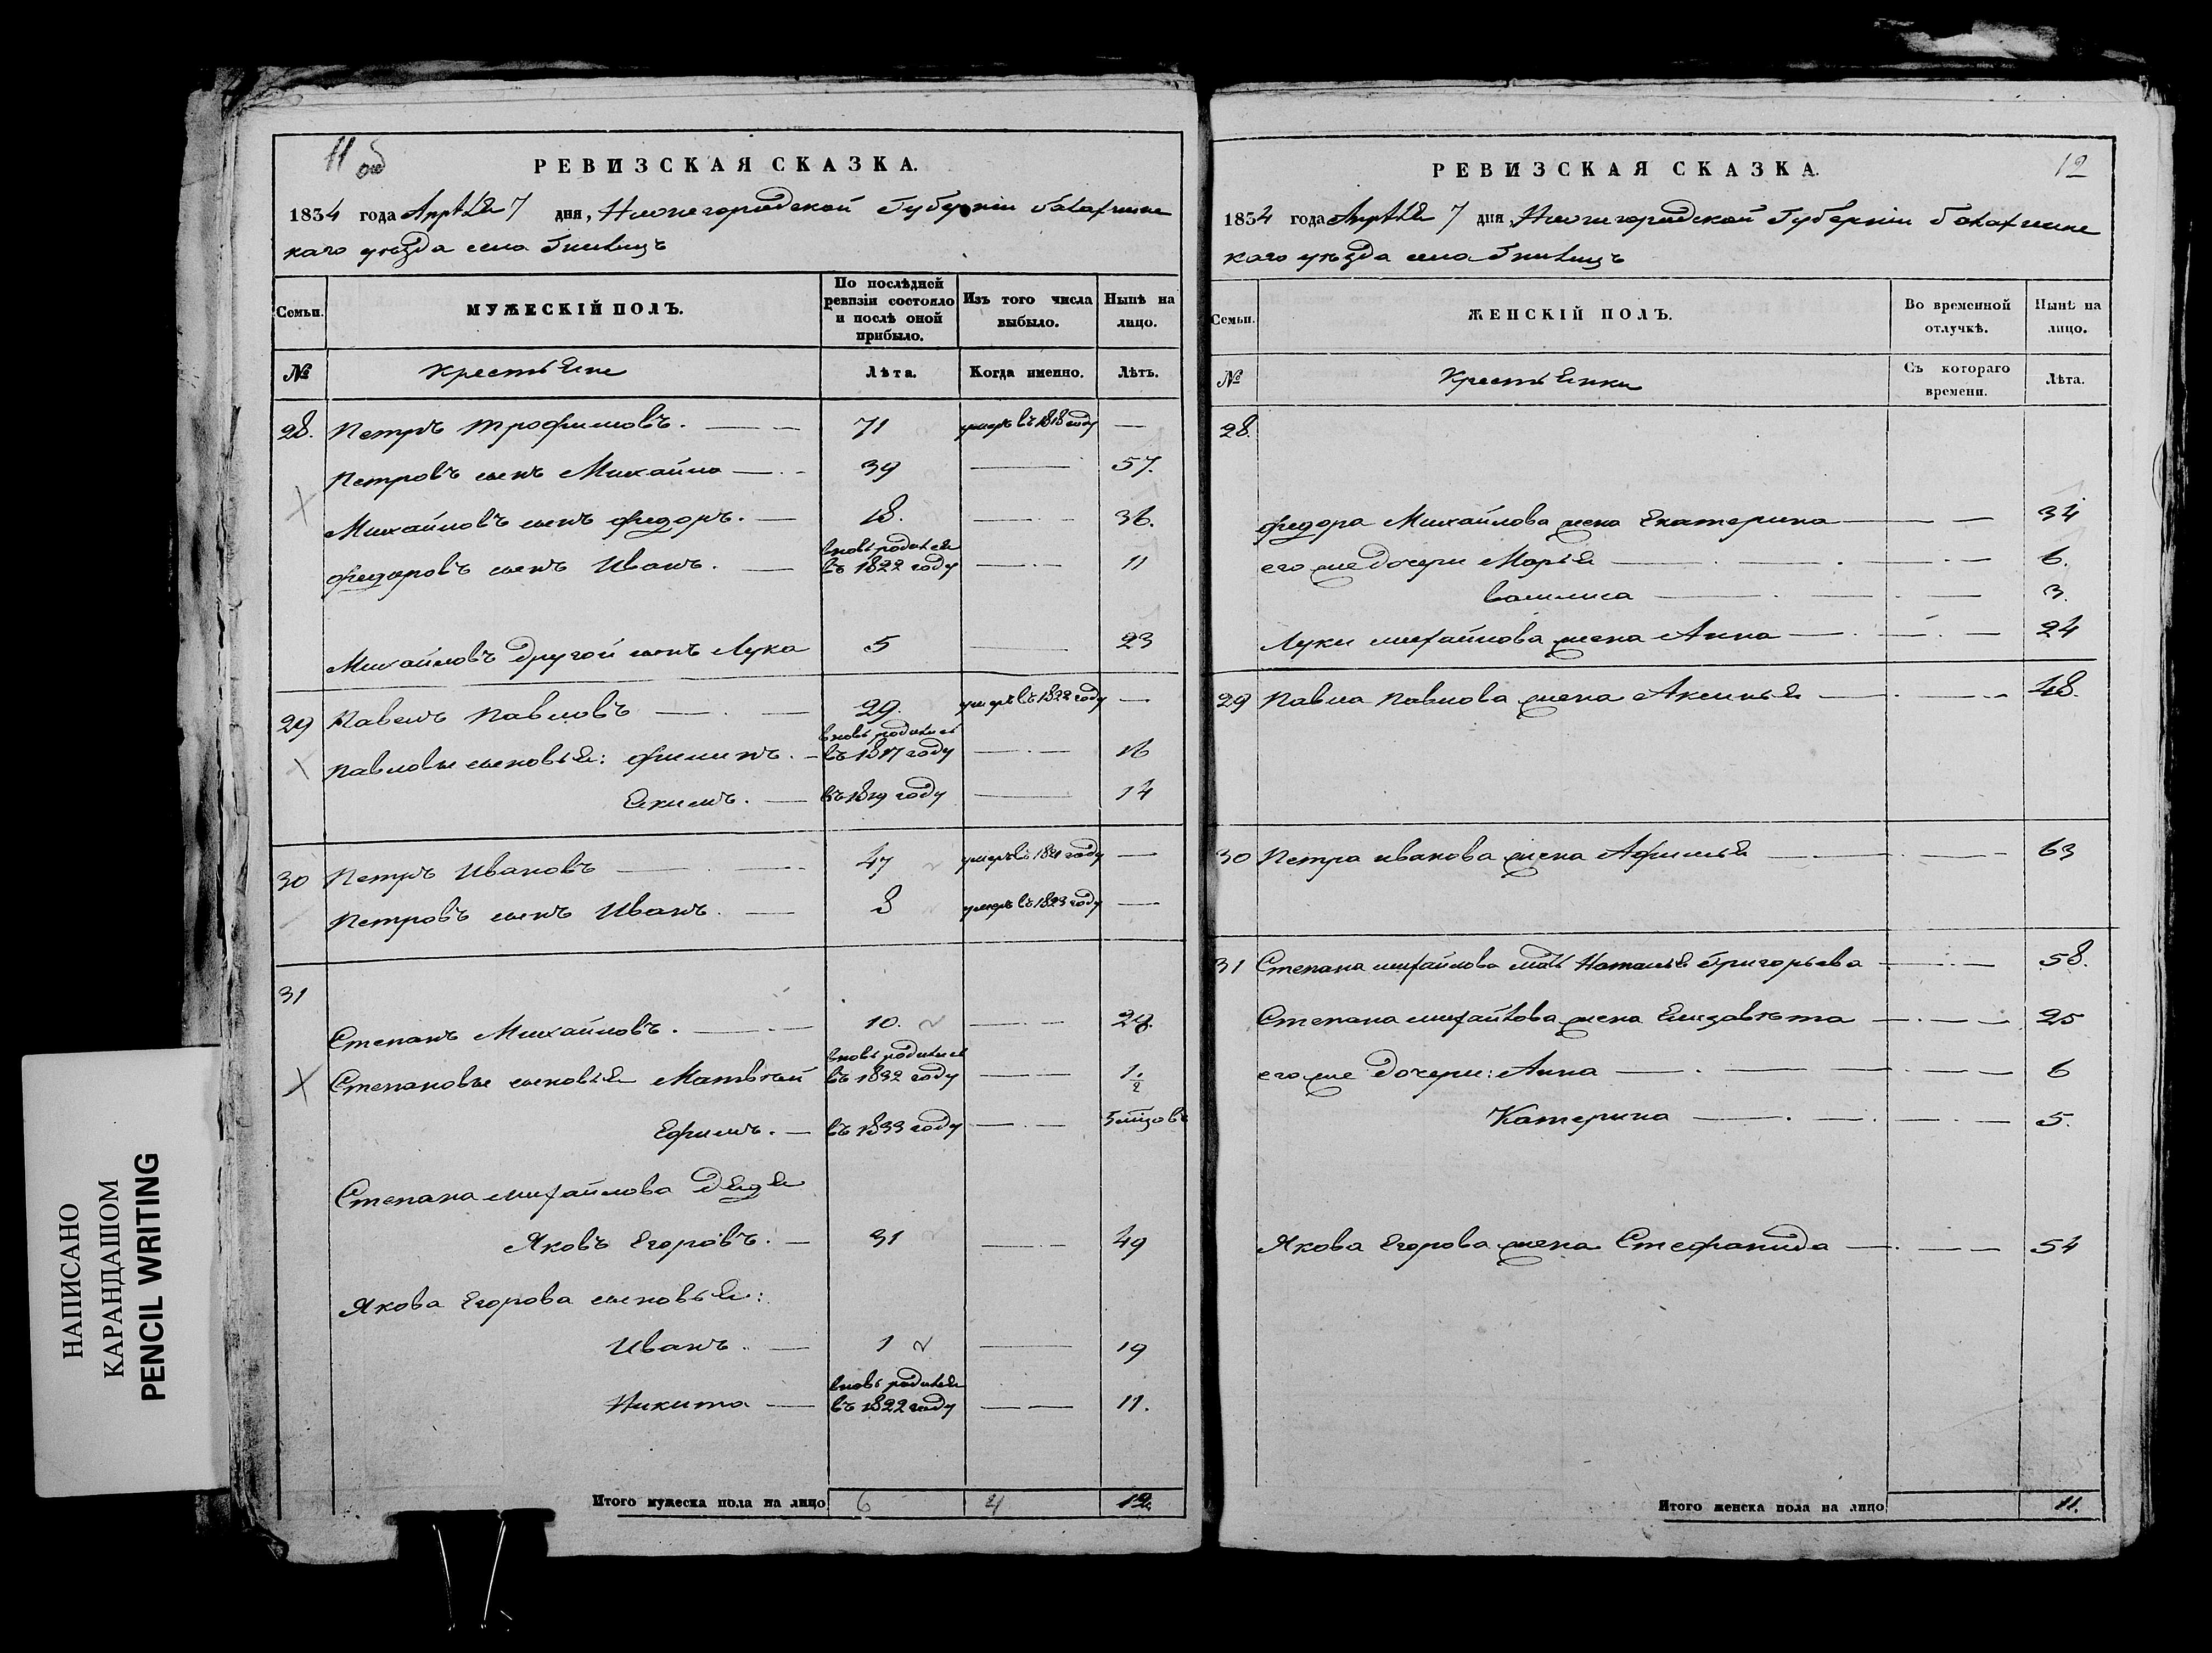 11 об
РЕВИЗСКАЯ СКАЗКА.
1834 года Апрѣля 7 дня, Нижегородской Губерніи Балахнинс
каго уѣзда села Гнилицъ
Семьи.
МУЖЕСКІЙ ПОЛЪ.
По послѣдней ревизіи состояло и послѣ оной прибыло.
Изъ того числа выбыло.
Нынѣ на лицо.
№
Крестьяне
Лѣта.
Когда именно.
Лѣтъ.
28. Петръ Трофимовъ. 71 умеръ въ 1818 году —
Петровъ сынъ Михайла 39 — 57.
Михайловъ сынъ Федоръ. 18. — 36.
вновь родился
Федоровъ сынъ Иванъ. въ 1822 году — 11
Михайловъ другой сынъ Лука 5 — 23
29 Павелъ Павловъ 29. умеръ въ 1822 году —
вновь родились
Павловы сыновья: Филипъ. въ 1817 году — 16
Якимъ. въ 1819 году — 14
30 Петръ Ивановъ 47 умеръ въ 1821 году —
Петровъ сынъ Иванъ. 8 умеръ въ 1823 году —
31
Степанъ Михайловъ. 10. — 28.
вновь родились
Степановы сыновья Матвѣй въ 1832 году — 1 1/2
Ефимъ. въ 1833 году — 5 мѣцовъ
Степана Михайлова дядя
Яковъ Егоровъ. 31 — 49
Якова Егорова сыновья:
Иванъ. 1 — 19
вновь родился
Никита въ 1822 году — 11.
Итого мужеска пола на лицо 6 4 12.
12
РЕВИЗСКАЯ СКАЗКА.
1834 года Апрѣля 7 дня, Нижегородской Губерніи Балахнинс
каго уѣзда села Гнилицъ
Семьи.
ЖЕНСКІЙ ПОЛЪ.
Во временной отлучкѣ.
Нынѣ на лицо.
№
Крестьянки
Съ котораго времени.
Лѣта.
28.
Федора Михайлова жена Екатерина — 34
его же дочери Марья — 6.
Василиса — 3.
Луки Михайлова жена Анна — 24
29 Павла Павлова жена Аксинья — 48.
30 Петра Иванова жена Афимья — 63
31 Степана Михайлова мать Наталья Григорьева — 58.
Степана Михайлова жена Елизавѣта — 25
его же дочери: Анна — 6
Катерина — 5.
Якова Егорова жена Стефанида — 54
Итого женска пола на лицо 11.
НАПИСАНО
КАРАНДАШОМ
PENCIL WRITING